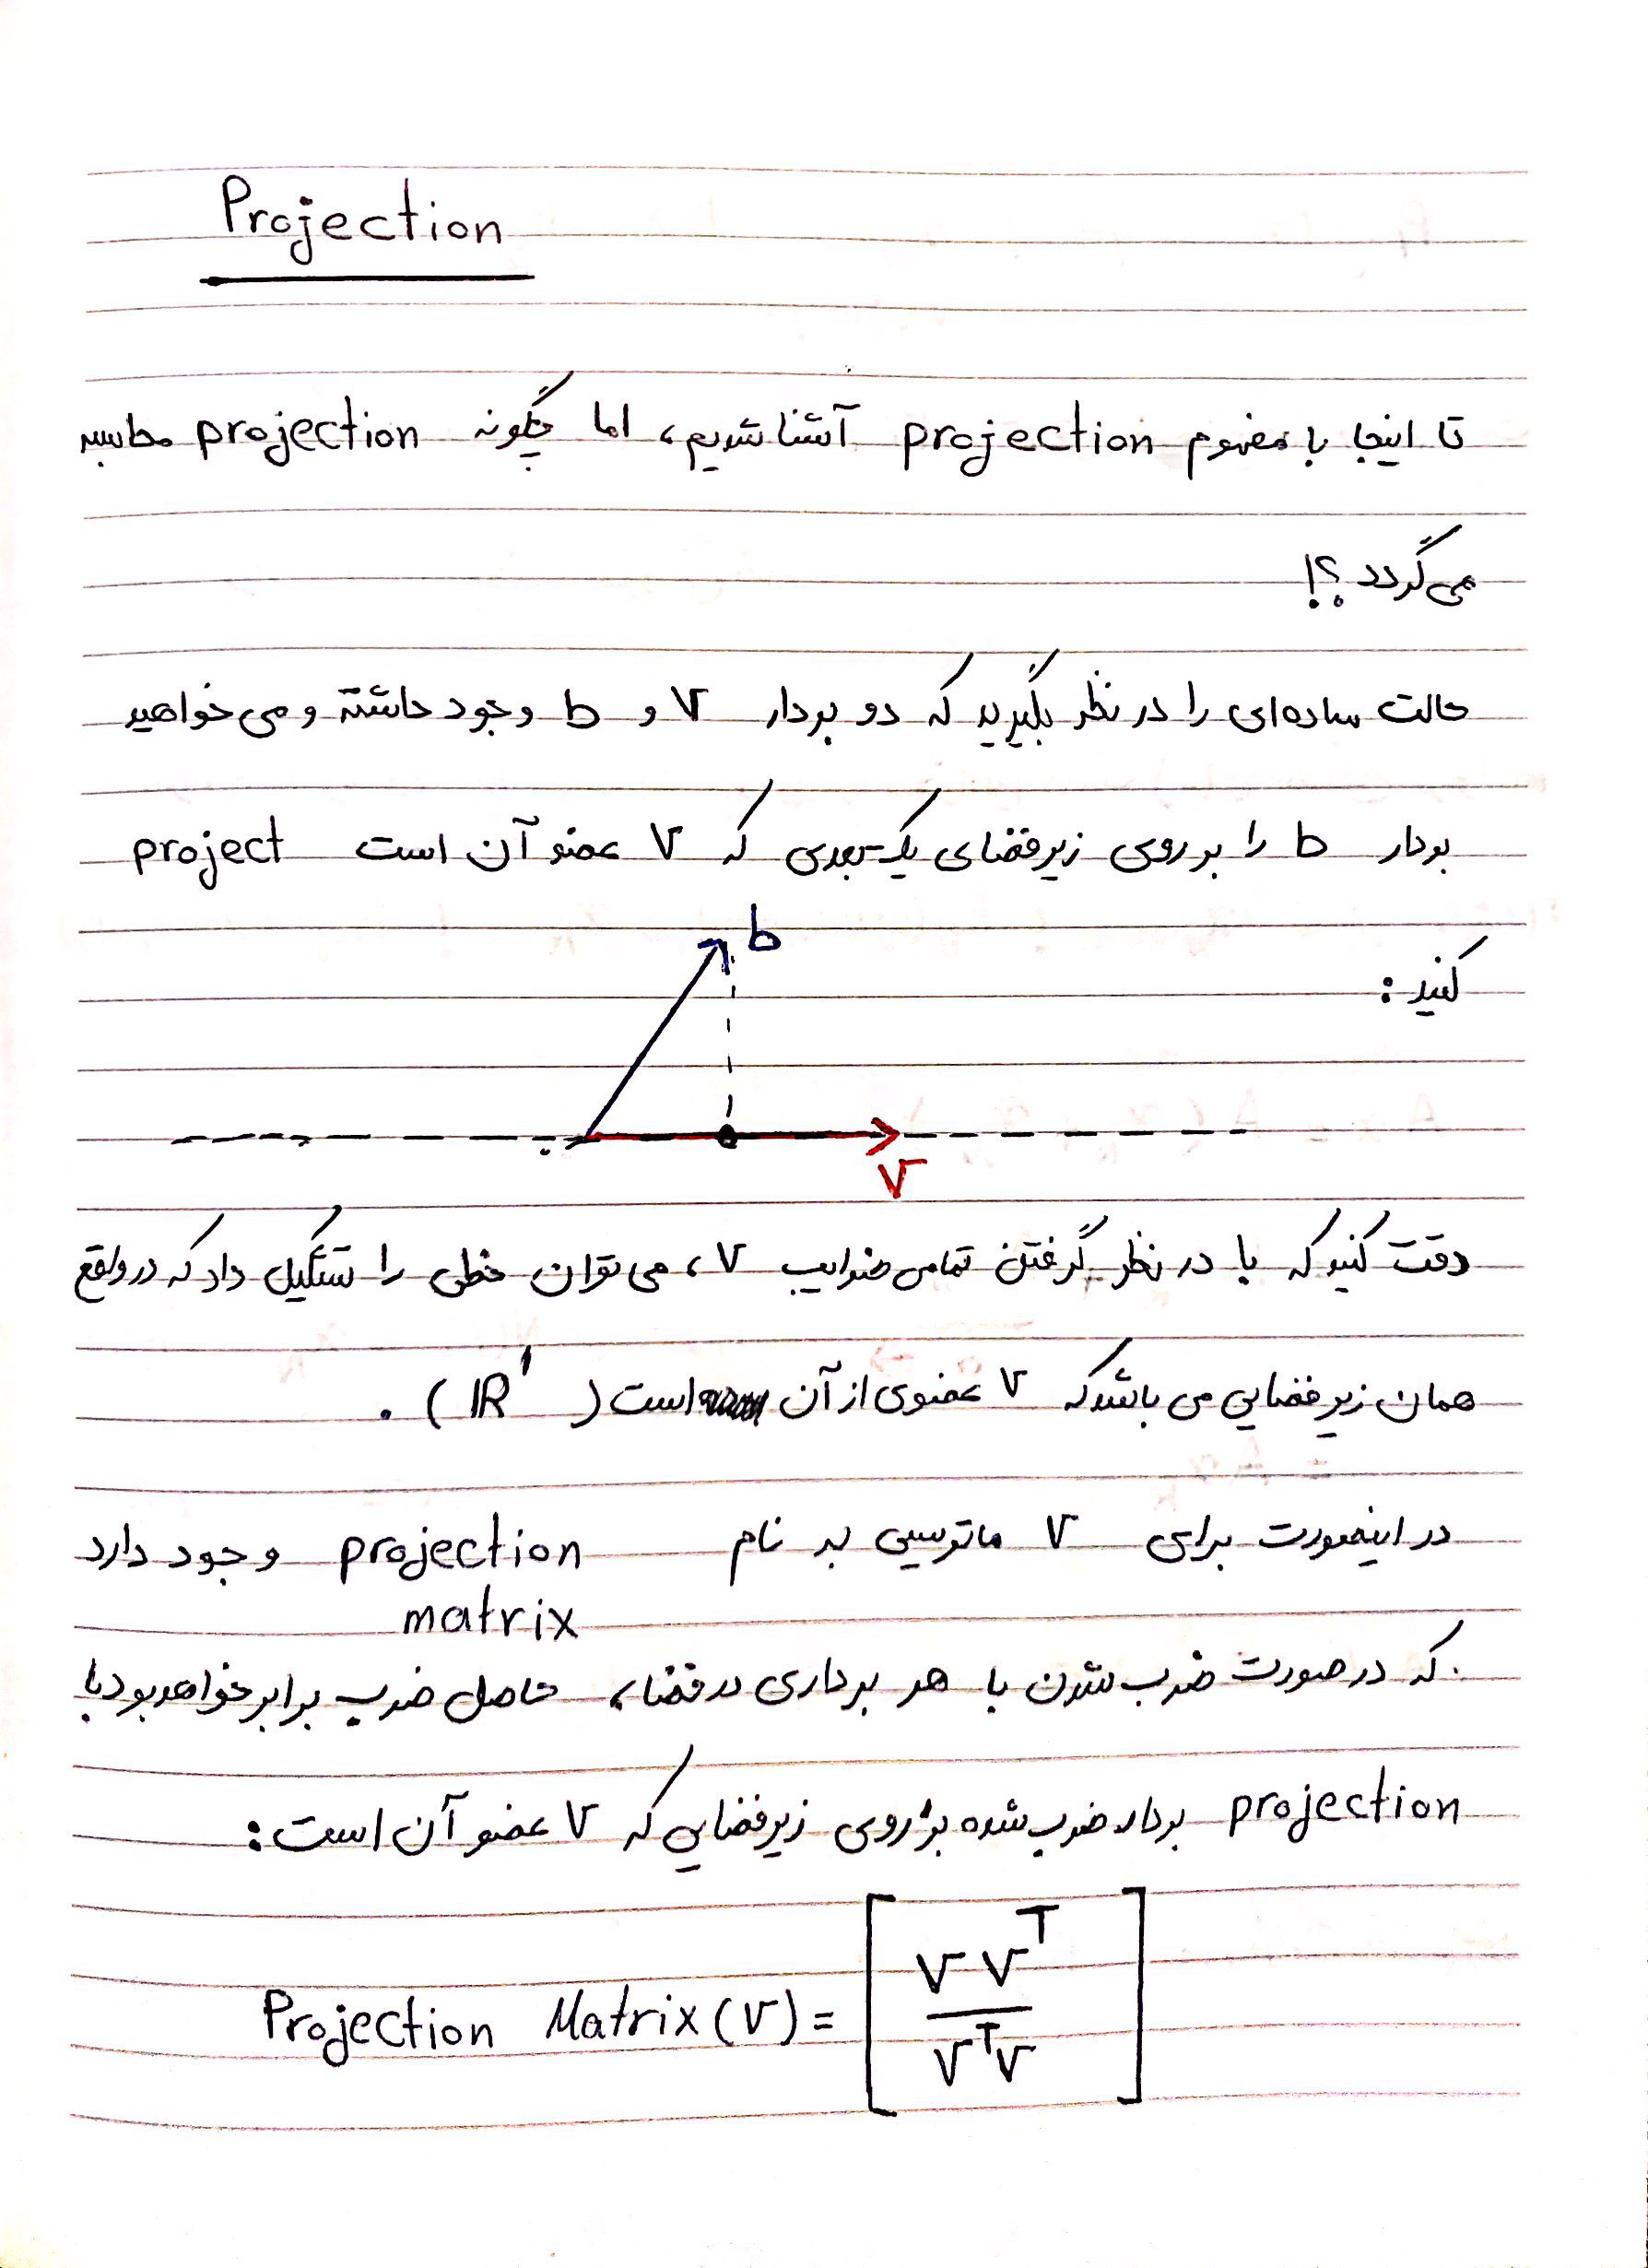 Projection
تا اینجا با مفهوم projection آشنا شدیم، اما چگونه projection محاسبه
می‌گردد ؟!
حالت ساده‌ای را در نظر بگیرید که دو بردار v و b وجود داشته و می‌خواهید
بردار b را بر روی زیرفضای یک‌بعدی که v عضو آن است project
کنید :
b
v
دقت کنید که با در نظر گرفتن تمامی ضرایب v، می‌توان خطی را تشکیل داد که در واقع
همان زیرفضایی می باشد که v عضوی از آن است (ℝ¹) .
در اینصورت برای v ماتریسی به نام projection وجود دارد
matrix
که در صورت ضرب شدن با هر برداری در فضا، حاصل ضرب برابر خواهد بود با
projection بردار ضرب شده بر روی زیرفضایی که v عضو آن است :
Projection Matrix (v) = [ v vᵀ / vᵀv ]